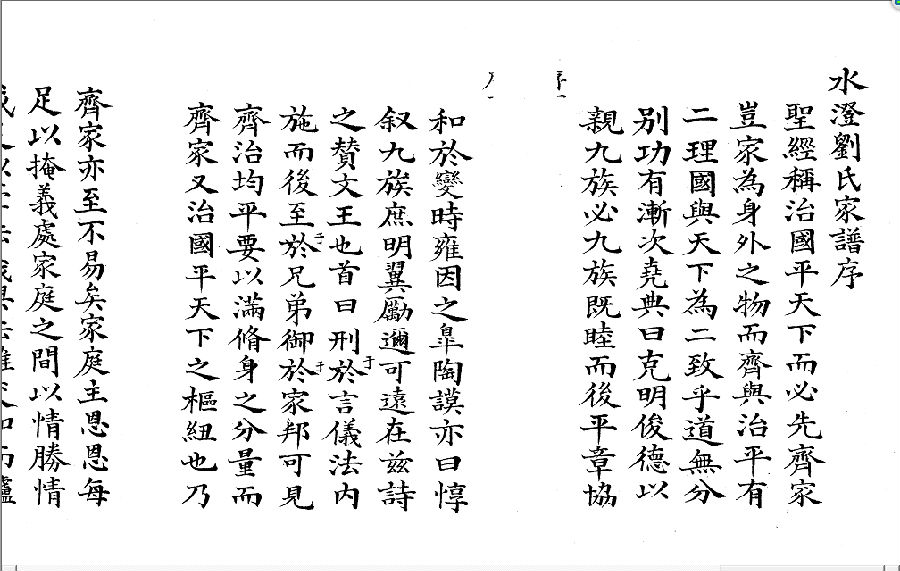 水澄劉氏家譜序
聖經稱治國平天下而必先齊家
豈家為身外之物而齊與治平有
二理國與天下為二致乎道無分
別功有漸次堯典曰克明俊德以
親九族必九族既睦而後平章協
和於變時雍因之臯陶謨亦曰惇
叙九族庶明翼勵邇可遠在兹詩
之贊文王也首曰刑於言儀法内
施而後至於兄弟御於家邦可見
齊治均平要以滿脩身之分量而
齊家又治國平天下之樞紐也乃
齊家亦至不易矣家庭主恩恩每
足以掩義處家庭之間以情勝情